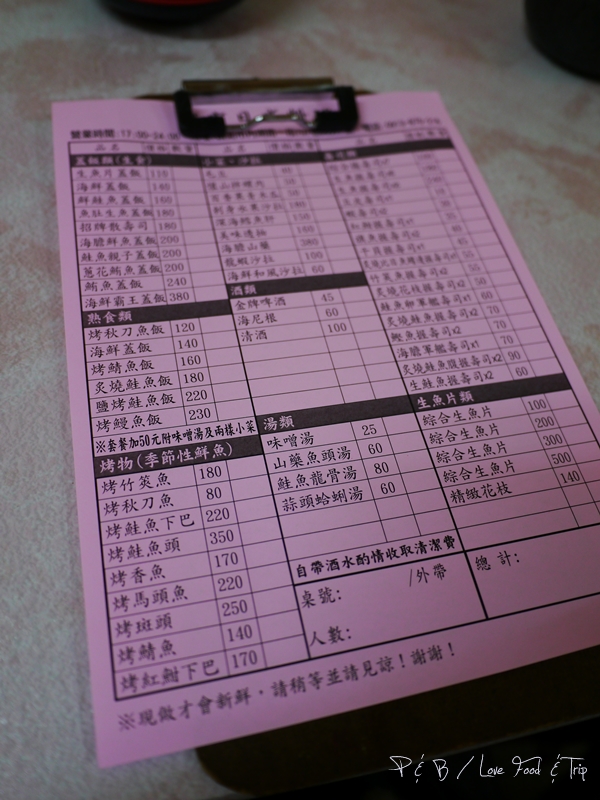 營業時間:17:00-24:00
品名
蓋飯類(生食)
生魚片蓋飯 110
海鮮蓋飯 140
鮮鮭魚蓋飯 160
魚肚生魚蓋飯 180
招牌散壽司 180
海膽鮮魚蓋飯 200
鮭魚親子蓋飯 200
蔥花鮪魚蓋飯 200
鮪魚蓋飯 240
海鮮霸王蓋飯 380
熟食類
烤秋刀魚飯 120
海鮮蓋飯 140
烤鯖魚飯 160
炙燒鮭魚飯 180
鹽烤鮭魚飯 220
烤鰻魚飯 230
※套餐加50元附味噌湯及兩樣小菜
烤物(季節性鮮魚)
烤竹筴魚 180
烤秋刀魚 80
烤鮭魚下巴 220
烤鮭魚頭 350
烤香魚 170
烤馬頭魚 220
烤斑頭 250
烤鯖魚 140
烤紅魽下巴 170
品名
小菜、沙拉
深海鱈魚肝 150
美味透抽 160
海膽山藥 380
龍蝦沙拉 100
海鮮和風沙拉 60
酒類
金牌啤酒 45
海尼根 60
清酒 100
湯類
味噌湯 25
山藥魚頭湯 60
鮭魚龍骨湯 80
蒜頭蛤蜊湯 60
品名
竹筴魚握壽司x2 55
炙燒花枝握壽司x2 50
鮭魚卵軍艦壽司x1 60
炙燒鮭魚握壽司x2 70
鰹魚握壽司x2 70
海膽軍艦壽司x1 70
炙燒鮭魚腹握壽司x2 90
生鮭魚握壽司x2 60
生魚片類
綜合生魚片 100
綜合生魚片 200
綜合生魚片 300
綜合生魚片 500
精緻花枝 140
自帶酒水酌情收取清潔費
桌號: /外帶
人數:
總計:
※現做才會新鮮,請稍等並請見諒!謝謝!
P & B / Love Food & Trip